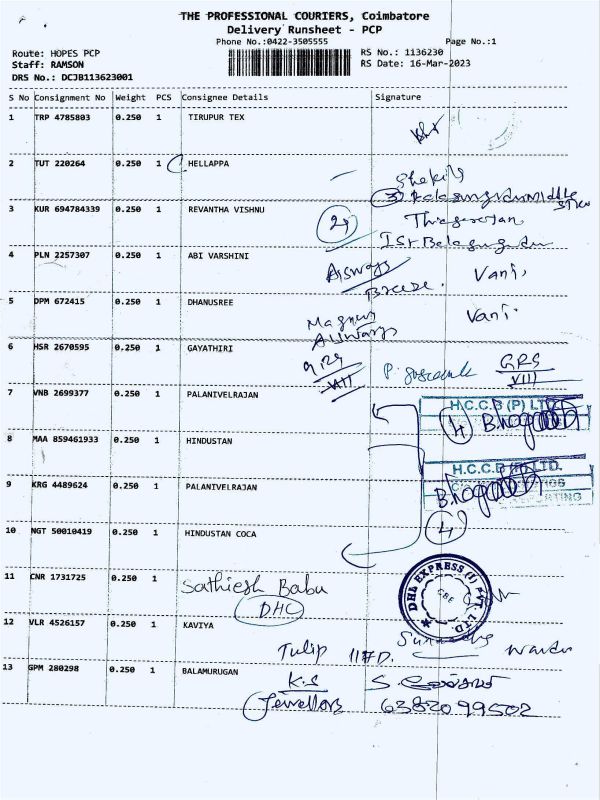 THE PROFESSIONAL COURIERS, Coimbatore
Delivery Runsheet - PCP
Phone No.:0422-3505555 Page No.:1
Route: HOPES PCP RS No.: 1136230
Staff: RAMSON RS Date: 16-Mar-2023
DRS No.: DCJB113623001
S No Consignment No Weight PCS Consignee Details Signature
1 TRP 4785803 0.250 1 TIRUPUR TEX
2 TUT 220264 0.250 1 HELLAPPA
3 KUR 694784339 0.250 1 REVANTHA VISHNU
4 PLN 2257307 0.250 1 ABI VARSHINI
Vani.
5 DPM 672415 0.250 1 DHANUSREE
Vani.
6 HSR 2670595 0.250 1 GAYATHIRI
GRS
VIII
VIII
7 VNB 2699377 0.250 1 PALANIVELRAJAN
H.C.C.B (P) LTD.
4
8 MAA 859461933 0.250 1 HINDUSTAN
H.C.C.B (P) LTD.
9 KRG 4489624 0.250 1 PALANIVELRAJAN
4
10 NGT 50010419 0.250 1 HINDUSTAN COCA
11 CNR 1731725 0.250 1 Sathiesh Babu
DHL EXPRESS (I) PVT. LTD.
CBE
12 VLR 4526157 0.250 1 KAVIYA
Tulip
13 GPM 280298 0.250 1 BALAMURUGAN
K.S
Jewellors 6382099502